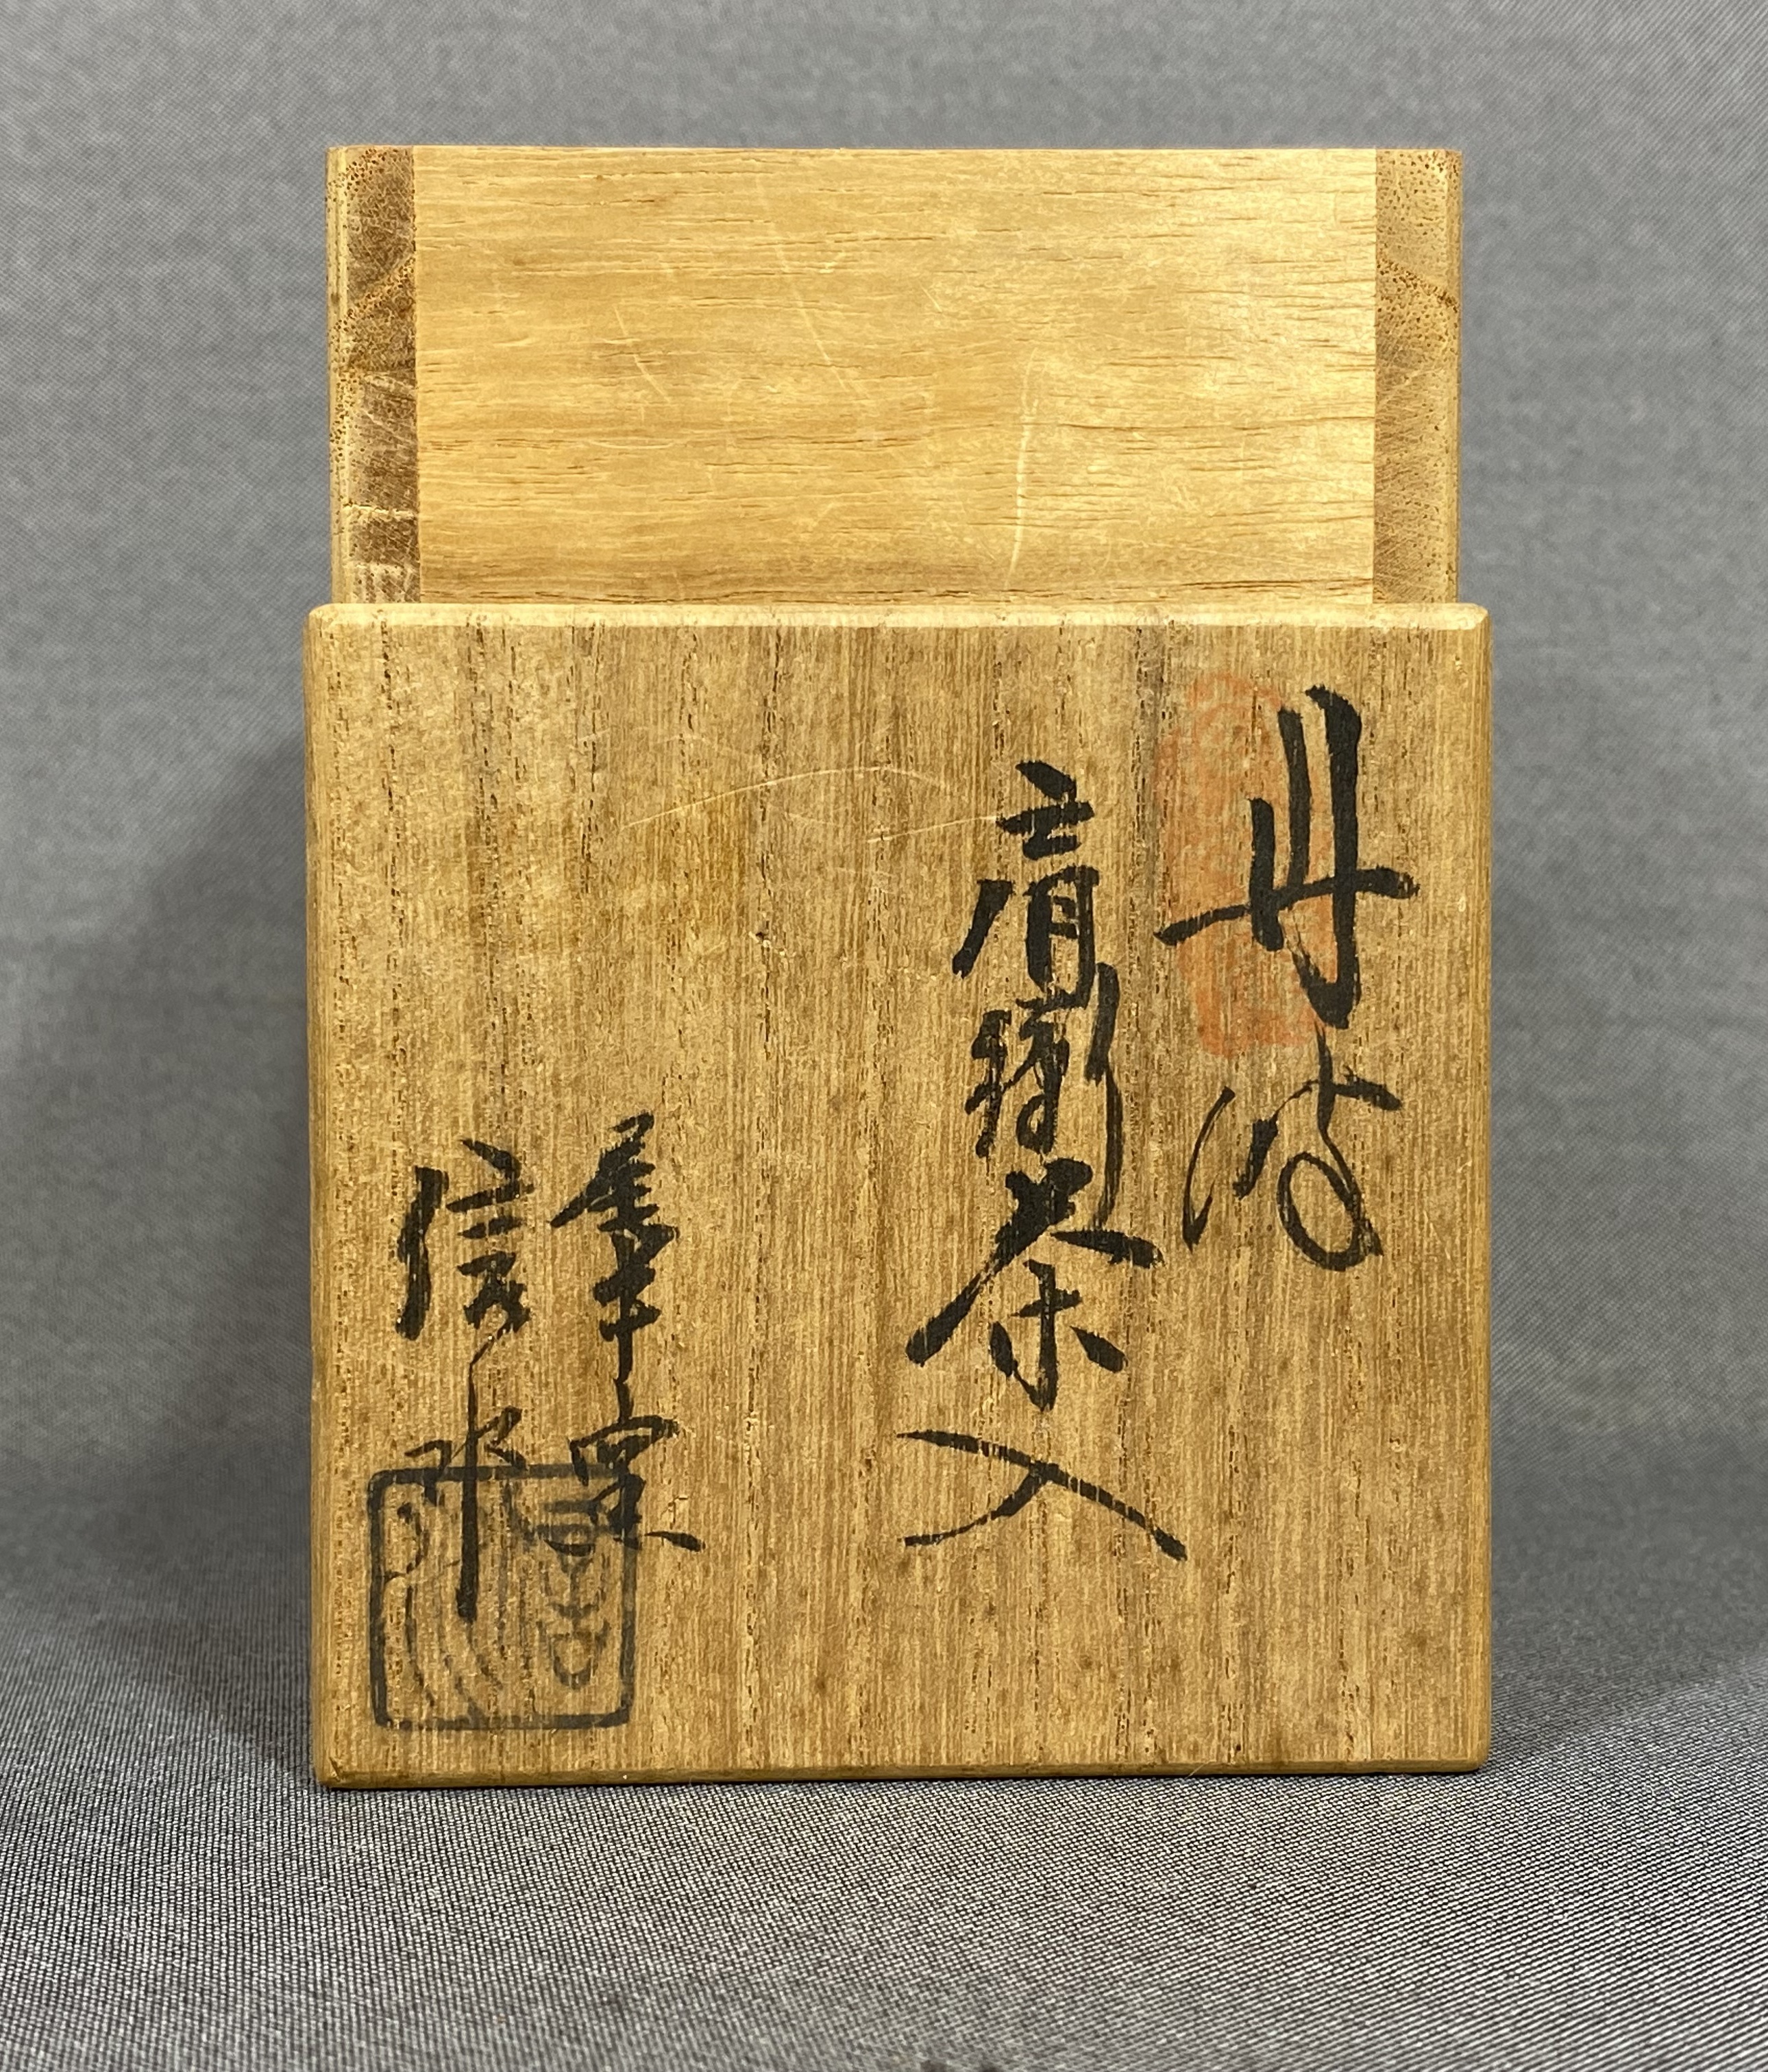 丹波
肩衝茶入
窯
信水